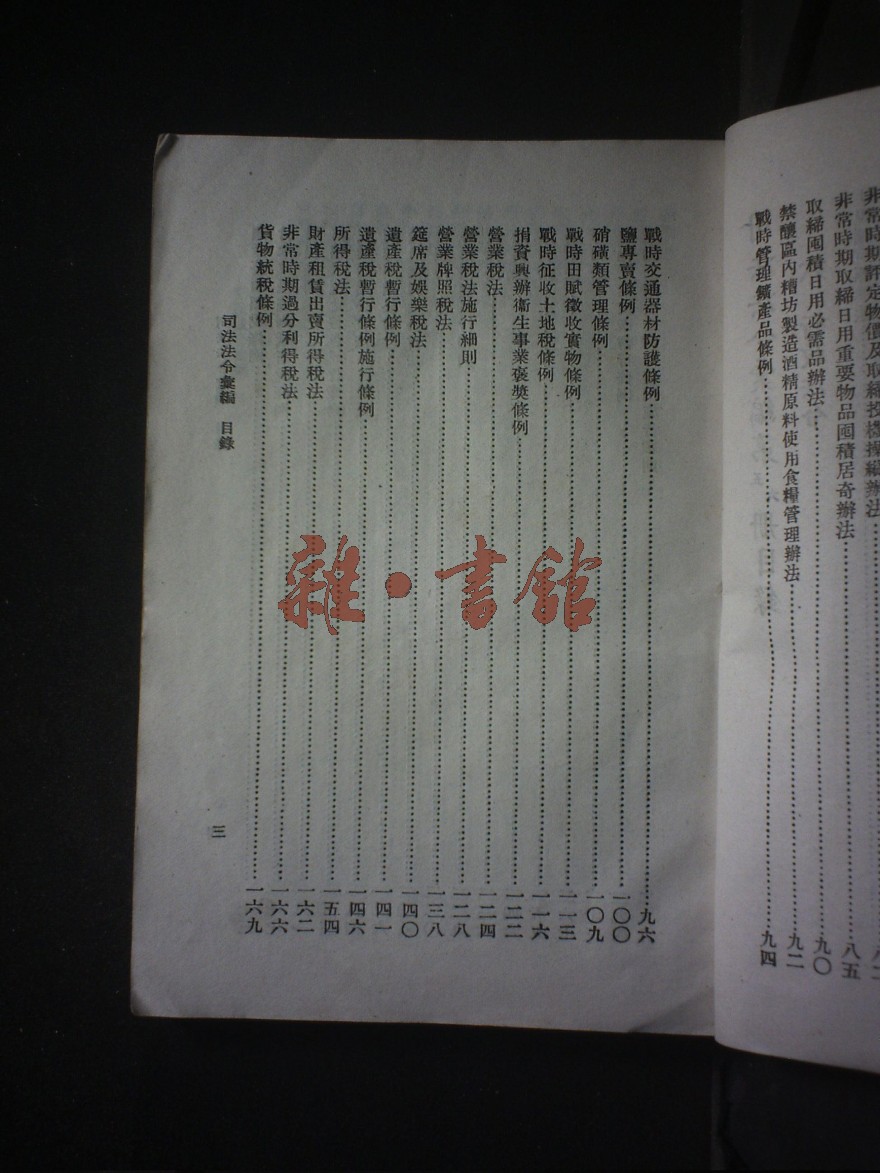 非常時期評定物價及取締投機操縱辦法
非常時期取締日用重要物品囤積居奇辦法……八五
取締囤積日用必需品辦法……九〇
禁釀區內糟坊製造酒精原料使用食糧管理辦法……九二
戰時管理鑛產品條例……九四
戰時交通器材防護條例……九六
鹽專賣條例……一〇〇
硝磺類管理條例……一〇九
戰時田賦徵收實物條例……一一三
戰時征收土地稅條例……一一六
捐資興辦衞生事業褒獎條例……一二二
營業稅法……一二四
營業稅法施行細則……一二八
營業牌照稅法……一三八
筵席及娛樂稅法……一四〇
遺產稅暫行條例……一四一
遺產稅暫行條例施行條例……一四六
所得稅法……一五四
財產租賃出賣所得稅法……一六二
非常時期過分利得稅法……一六六
貨物統稅條例……一六九
司法法令彙編 目錄
三
雜·書館